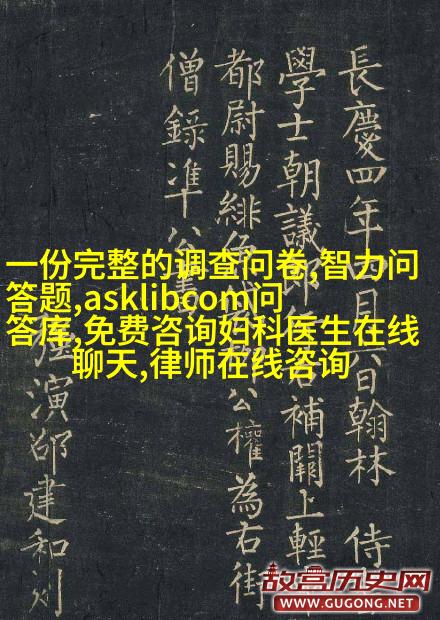 長慶四年月六日翰林侍
學士朝議郎右補闕上輕
都尉賜緋公權為右街
僧錄准公
演邵建和刻
一份完整的调查问卷,智力问
答题,asklibcom问
答库,免费咨询妇科医生在线
聊天,律师在线咨询
故宫历史网
WWW.GUGONG.NET